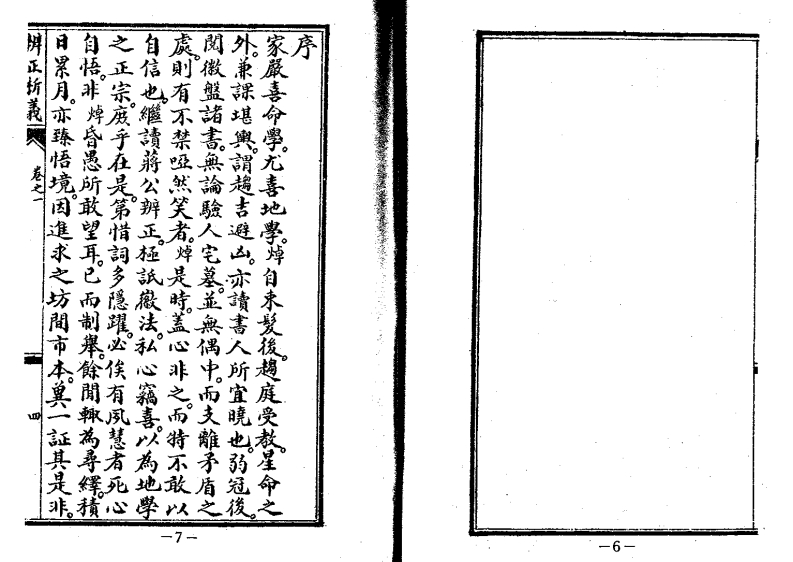 序
家嚴喜命學。尤喜地學。焯自束髮後。趨庭受教。星命之
外。兼課堪輿。謂趨吉避凶。亦讀書人所宜曉也。弱冠後。
閱徽盤諸書。無論驗人宅墓。並無偶中。而支離矛盾之
處。則有不禁啞然笑者。焯是時。蓋心非之。而特不敢以
自信也。繼讀蔣公辨正。極詆徽法。私心竊喜。以為地學
之正宗。庶乎在是。第惜詞多隱躍。必俟有夙慧者死心
自悟。非焯昏愚所敢望耳。已而制舉。餘閒輒為尋繹。積
日累月。亦臻悟境。因進求之坊間市本。冀一証其是非。
辨正析義
卷之一
四
－7－
－6－